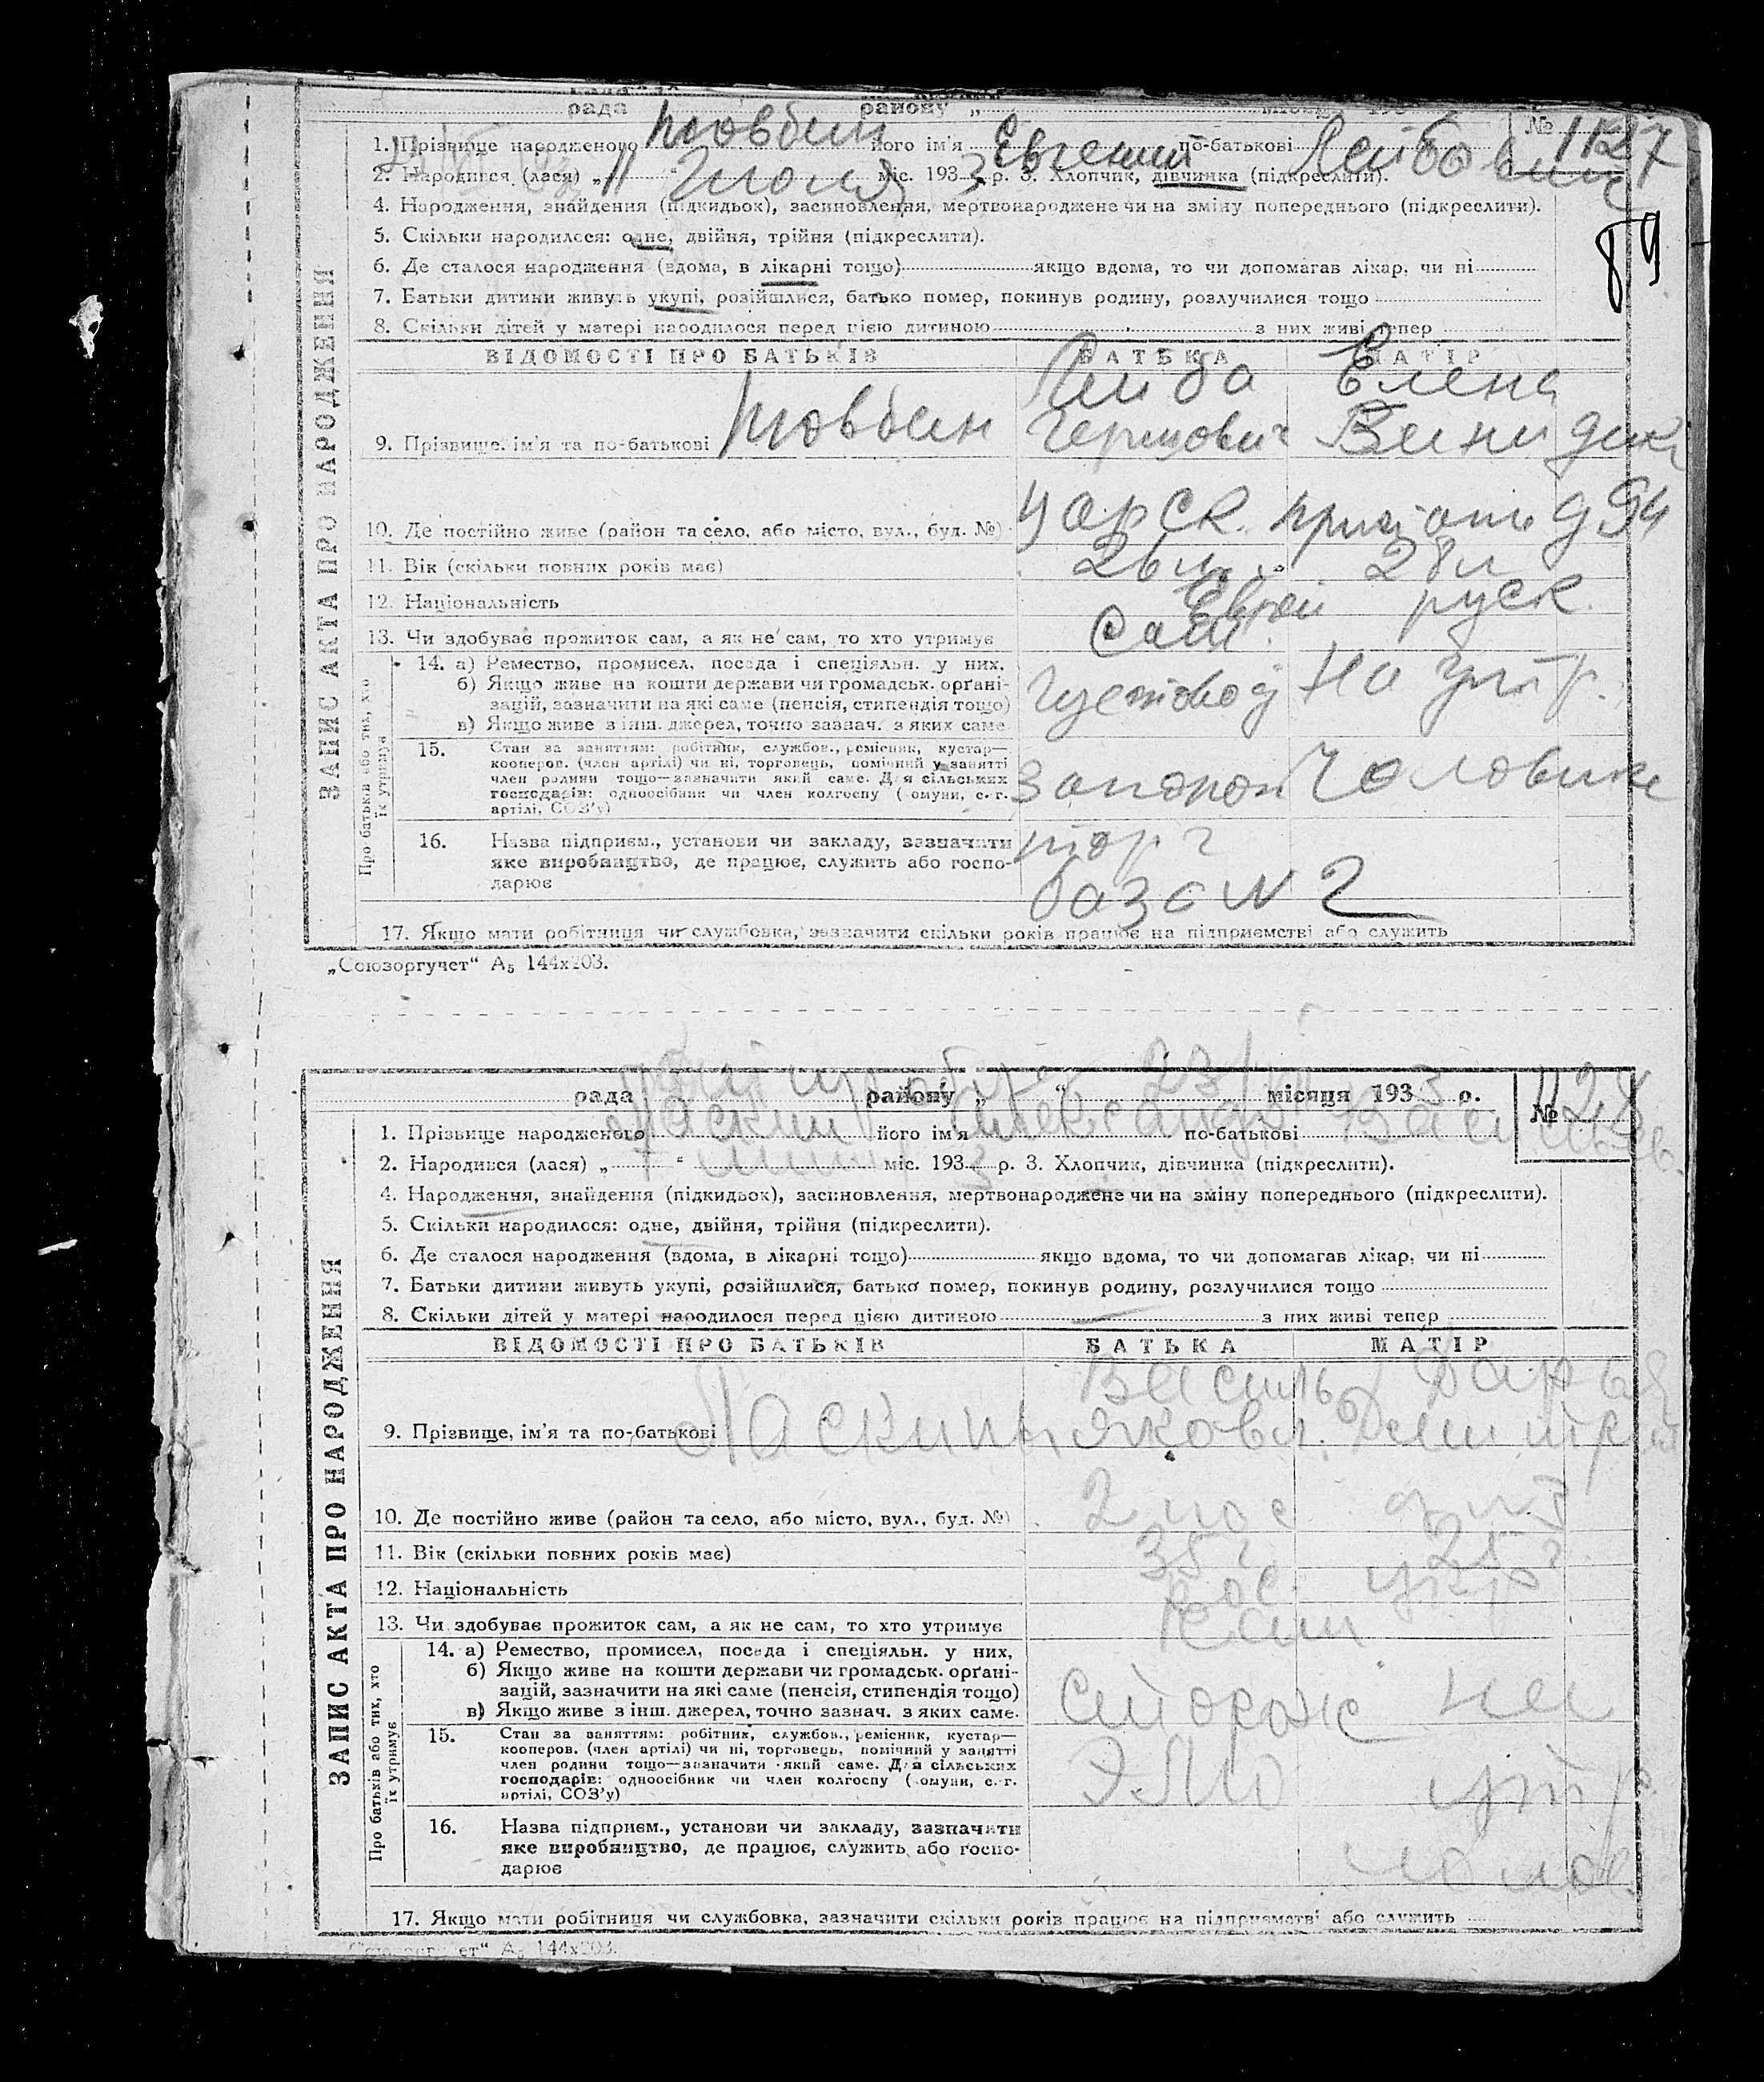 рада району „ місяц 193
№ 1127
1. Прізвище народженого Товбин його ім'я Евгений по-батькові Лейбович
2. Народився (лася) „ 11 " Июля міс. 193 3 р. 3. Хлопчик, дівчинка (підкреслити).
89
4. Народження, знайдення (підкидьок), засиновлення, мертвонароджене чи на зміну попереднього (підкреслити).
5. Скільки народилося: одне, двійня, трійня (підкреслити).
6. Де сталося народження (вдома, в лікарні тощо) якщо вдома, то чи допомагав лікар, чи ні
7. Батьки дитини живуть укупі, розійшлися, батько помер, покинув родину, розлучилися тощо
8. Скільки дітей у матері народилося перед цією дитиною з них живі тепер
ВІДОМОСТІ ПРО БАТЬКІВ БАТЬКА МАТІР
Лейба Елена
9. Прізвище, ім'я та по-батькові Товбин Герцович
10. Де постійно живе (район та село, або місто, вул., буд. №)
11. Вік (скільки повних років має) 26 л. 28 л
12. Національність Еврей руск.
13. Чи здобуває прожиток сам, а як не сам, то хто утримує Сам
14. а) Ремество, промисел, посада і спеціяльн. у них,
б) Якщо живе на кошти держави чи громадськ. орґані-
зацій, зазначити на які саме (пенсія, стипендія тощо)
в) Якщо живе з інш. джерел, точно зазнач. з яких саме
На утр.
15. Стан за заняттям: робітник, службов., ремісник, кустар—
кооперов. (член артілі) чи ні, торговець, помічний у занятті
член родини тощо—зазначити який саме. Для сільських
господарів: одноосібник чи член колгоспу (комуни, с.-г.
артілі, СОЗ'у)
Чоловика
16. Назва підприєм., установи чи закладу, зазначити
яке виробництво, де працює, служить або госпо-
дарює
торг
база N 2
17. Якщо мати робітниця чи службовка, зазначити скільки років працює на підприємстві або служить
ЗАПИС АКТА ПРО НАРОДЖЕННЯ
Про батьків або тих, хто
їх утримує
„Союзоргучет“ А5 144х203.
рада району „ 23/VII “ місяця 193 3 р.
№ 1128
1. Прізвище народженого Ласкин його ім'я Александр по-батькові
2. Народився (лася) „ 7 " міс. 193 3 р. 3. Хлопчик, дівчинка (підкреслити).
4. Народження, знайдення (підкидьок), засиновлення, мертвонароджене чи на зміну попереднього (підкреслити).
5. Скільки народилося: одне, двійня, трійня (підкреслити).
6. Де сталося народження (вдома, в лікарні тощо) якщо вдома, то чи допомагав лікар, чи ні
7. Батьки дитини живуть укупі, розійшлися, батько помер, покинув родину, розлучилися тощо
8. Скільки дітей у матері народилося перед цією дитиною — з них живі тепер
ВІДОМОСТІ ПРО БАТЬКІВ БАТЬКА МАТІР
Василь Дарья
9. Прізвище, ім'я та по-батькові Ласкины Яковл.
10. Де постійно живе (район та село, або місто, вул., буд. №) 2 пос
11. Вік (скільки повних років має) 35 г 25 г.
12. Національність рос. укр
13. Чи здобуває прожиток сам, а як не сам, то хто утримує Сам
14. а) Ремество, промисел, посада і спеціяльн. у них,
б) Якщо живе на кошти держави чи громадськ. орґані-
зацій, зазначити на які саме (пенсія, стипендія тощо)
в) Якщо живе з інш. джерел, точно зазнач. з яких саме.
Сторож на
15. Стан за заняттям: робітник, службов., ремісник, кустар—
кооперов. (член артілі) чи ні, торговець, помічний у занятті
член родини тощо—зазначити який саме. Для сільських
господарів: одноосібник чи член колгоспу (комуни, с.-г.
артілі, СОЗ'у)
утр.
16. Назва підприєм., установи чи закладу, зазначити
яке виробництво, де працює, служить або госпо-
дарює
чолов.
17. Якщо мати робітниця чи службовка, зазначити скільки років працює на підприємстві або служить
ЗАПИС АКТА ПРО НАРОДЖЕННЯ
Про батьків або тих, хто
їх утримує
„Союзоргучет“ А5 144х203.